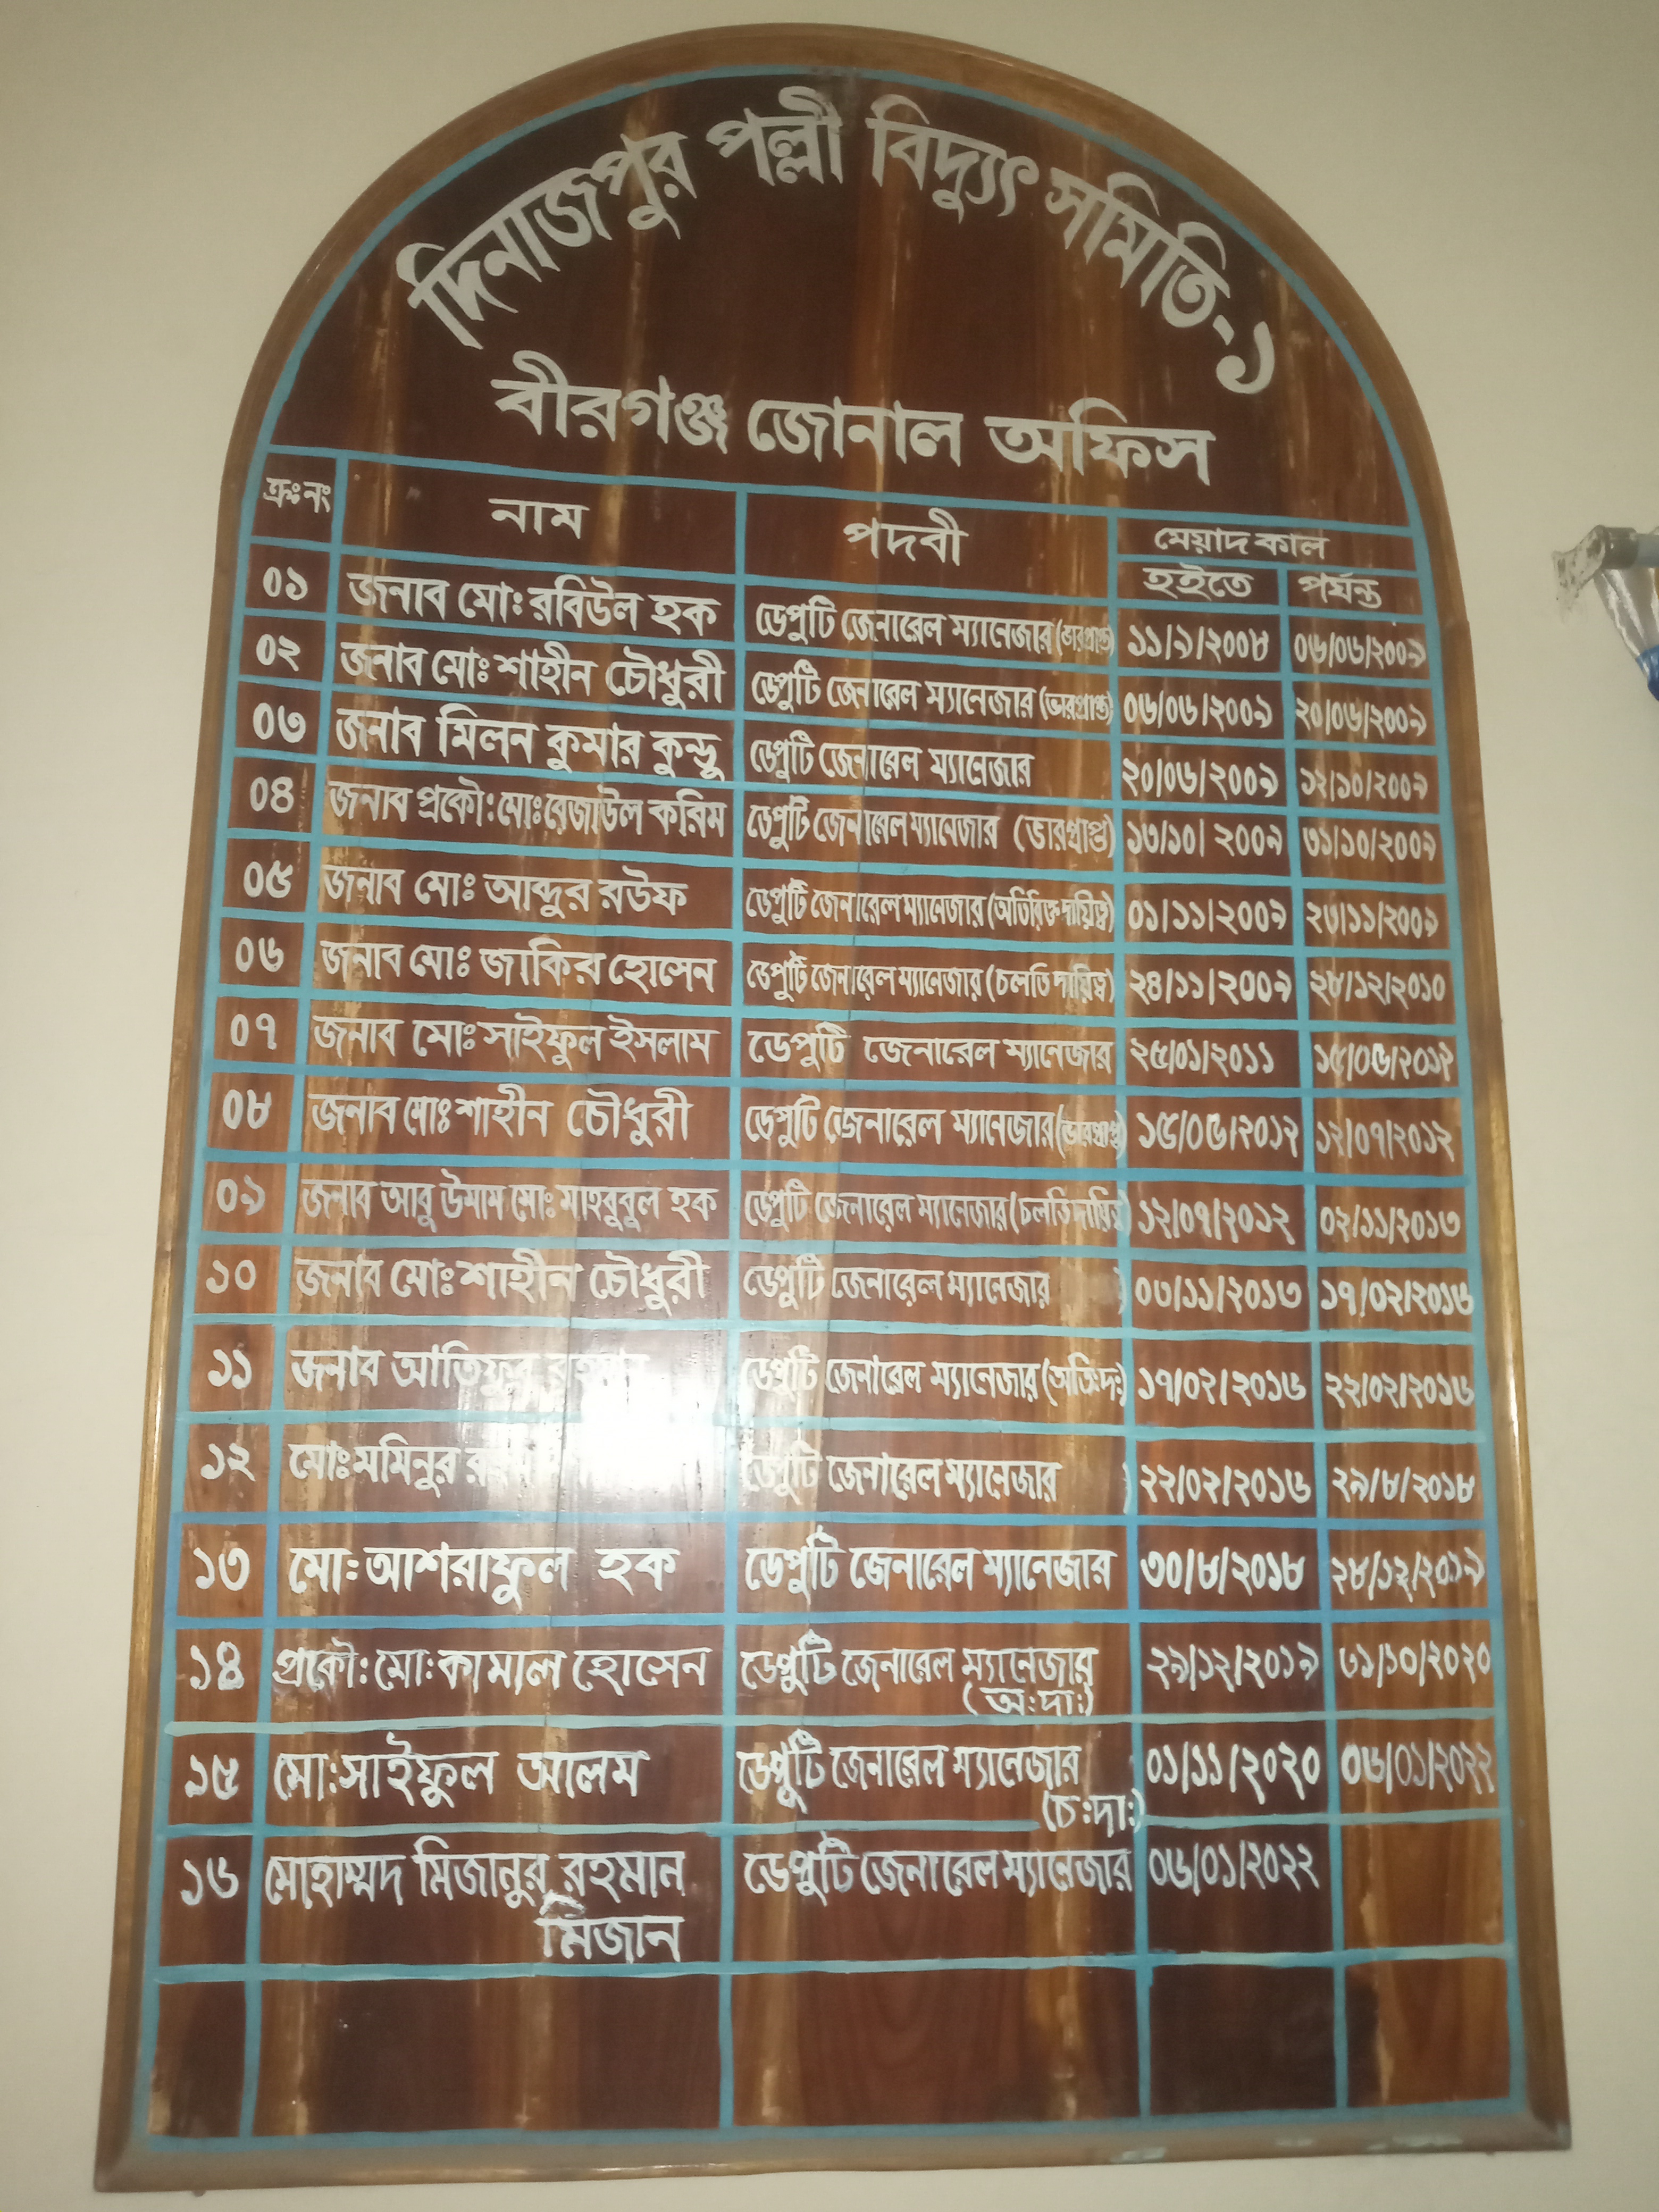 দিনাজপুর পল্লী বিদ্যুৎ সমিতি-১
বীরগঞ্জ জোনাল অফিস
ক্রঃ নং নাম পদবী মেয়াদ কাল
হইতে পর্যন্ত
০১ জনাব মোঃ রবিউল হক ডেপুটি জেনারেল ম্যানেজার (ভারপ্রাপ্ত) ১১/৯/২০০৮ ০৬/০৬/২০০৯
০২ জনাব মোঃ শাহীন চৌধুরী ডেপুটি জেনারেল ম্যানেজার (ভারপ্রাপ্ত) ০৬/০৬/২০০৯ ২০/০৬/২০০৯
০৩ জনাব মিলন কুমার কুন্ডু ডেপুটি জেনারেল ম্যানেজার ২০/০৬/২০০৯ ১২/১০/২০০৯
০৪ জনাব প্রকৌ: মোঃ রেজাউল করিম ডেপুটি জেনারেল ম্যানেজার (ভারপ্রাপ্ত) ১৩/১০/২০০৯ ৩১/১০/২০০৯
০৫ জনাব মোঃ আব্দুর রউফ ডেপুটি জেনারেল ম্যানেজার (অতিরিক্ত দায়িত্ব) ০১/১১/২০০৯ ২৩/১১/২০০৯
০৬ জনাব মোঃ জাকির হোসেন ডেপুটি জেনারেল ম্যানেজার (চলতি দায়িত্ব) ২৪/১১/২০০৯ ২৮/১২/২০১০
০৭ জনাব মোঃ সাইফুল ইসলাম ডেপুটি জেনারেল ম্যানেজার ২৫/০১/২০১১ ১৫/০৫/২০১২
০৮ জনাব মোঃ শাহীন চৌধুরী ডেপুটি জেনারেল ম্যানেজার (ভারপ্রাপ্ত) ১৫/০৫/২০১২ ১২/০৭/২০১২
০৯ জনাব আবু উমাম মোঃ মাহবুবুল হক ডেপুটি জেনারেল ম্যানেজার (চলতি দায়িত্ব) ১২/০৭/২০১২ ০২/১১/২০১৩
১০ জনাব মোঃ শাহীন চৌধুরী ডেপুটি জেনারেল ম্যানেজার ) ০৩/১১/২০১৩ ১৭/০২/২০১৬
১১ জনাব আতিফুর ডেপুটি জেনারেল ম্যানেজার (অতি:দ:) ১৭/০২/২০১৬ ২২/০২/২০১৬
১২ মোঃ মমিনুর ডেপুটি জেনারেল ম্যানেজার ) ২২/০২/২০১৬ ২৯/৮/২০১৮
১৩ মো: আশরাফুল হক ডেপুটি জেনারেল ম্যানেজার ৩০/৮/২০১৮ ২৮/১২/২০১৯
১৪ প্রকৌ: মো: কামাল হোসেন ডেপুটি জেনারেল ম্যানেজার ২৯/১২/২০১৯ ৩১/১০/২০২০
(অ:দা:)
১৫ মো: সাইফুল আলম ডেপুটি জেনারেল ম্যানেজার ০১/১১/২০২০ ০৬/০১/২০২২
(চ:দা:)
১৬ মোহাম্মদ মিজানুর রহমান ডেপুটি জেনারেল ম্যানেজার ০৬/০১/২০২২
মিজান